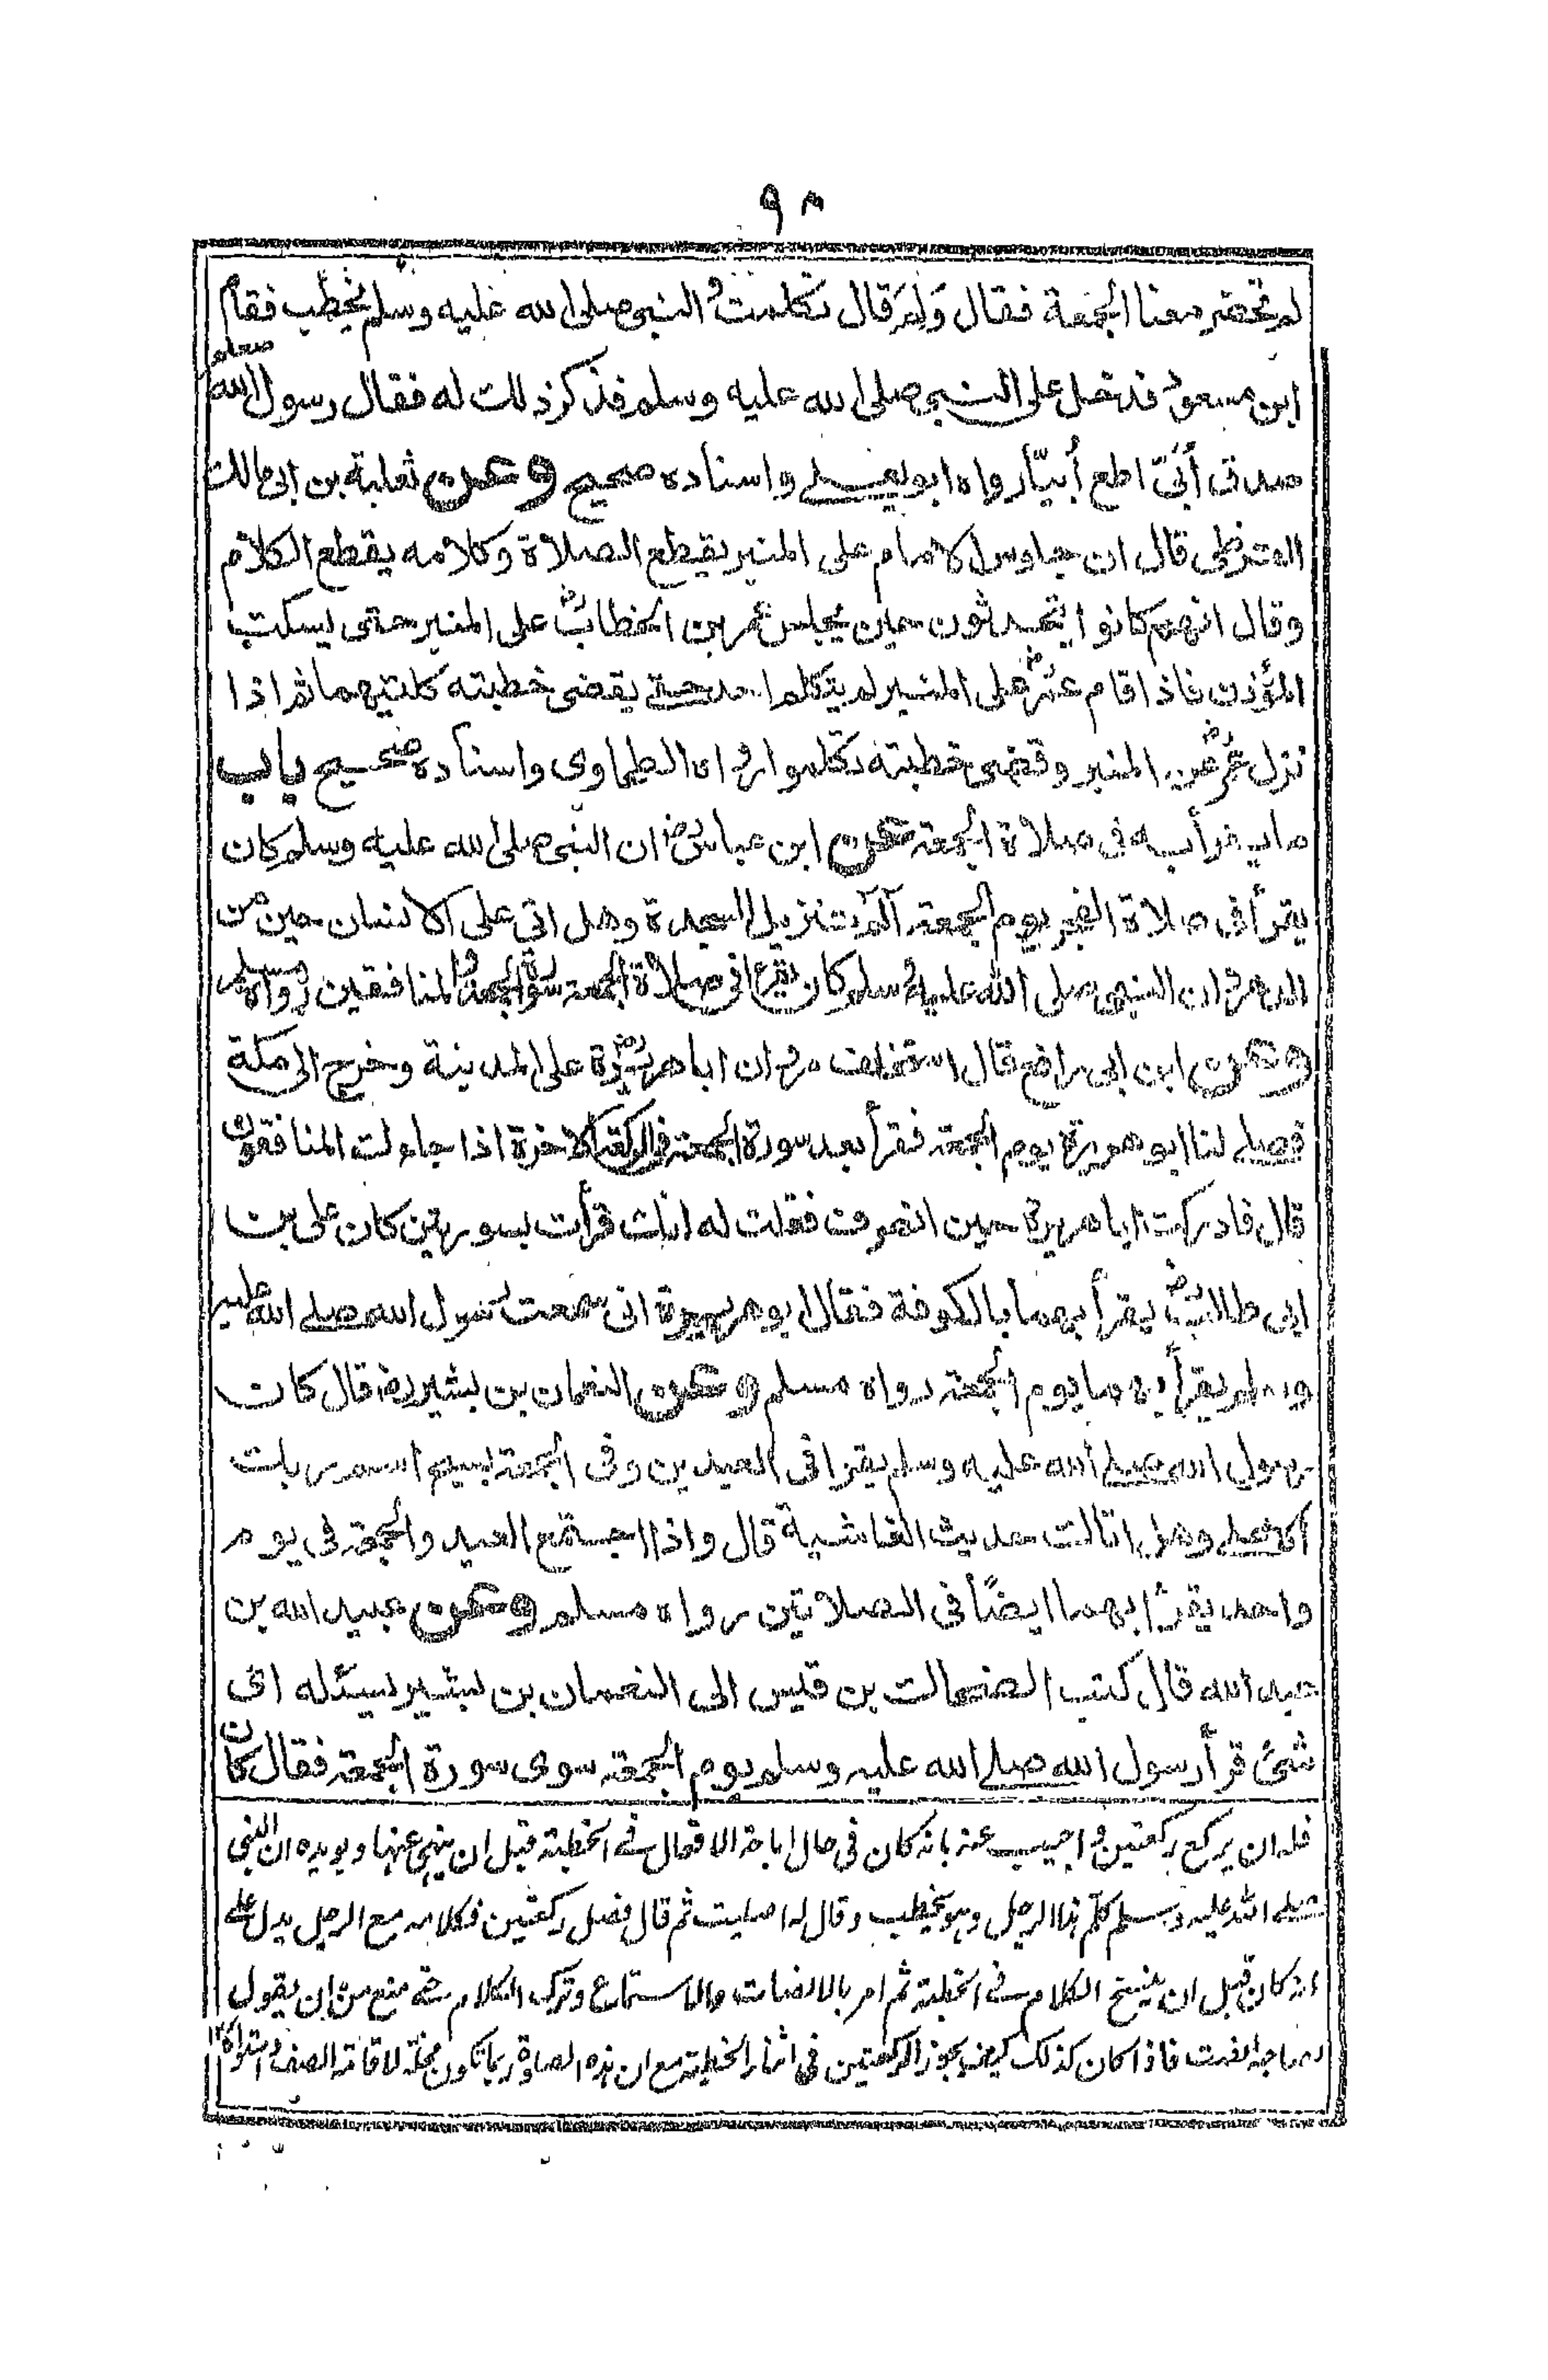 ٩٣
لم تحضر معنا الجمعة فقال ولم قال تكلمت والنبي صلى الله عليه وسلم يخطب فقام
ابن مسعود فدخل على النبي صلى الله عليه وسلم فذكر ذلك له فقال رسول الله صلعم
صدق أُبَيّ اطع أُبيّاً رواه ابو يعلى واسناده صحيح وعن ثعلبة بن ابى مالك
القرظى قال ان جلوس الامام على المنبر يقطع الصلاة وكلامه يقطع الكلام
وقال انهم كانوا يتحدثون حين يجلس عمر بن الخطابؓ على المنبر حتى يسكت
المؤذن فاذا قام عمرؓ على المنبر لم يتكلم احد حتى يقضى خطبته كلتيهما ثم اذا
نزل عمرؓ عن المنبر وقضى خطبته تكلموا رواه الطحاوى واسناده صحيح باب
ما يقرأ به فى صلاة الجمعة عن ابن عباسؓ ان النبى صلى الله عليه وسلم كان
يقرأ فى صلاة الفجر يوم الجمعة الٓمّ تنزيل السجدة وهل اتى على الانسان حين من
الدهر وان النبى صلى الله عليه وسلم كان يقرء فى صلاة الجمعة سورة الجمعة والمنافقين رواه مسلم
وعن ابن ابى رافع قال استخلف مروان اباهريرةؓ على المدينة وخرج الى مكة
فصلى لنا ابو هريرة يوم الجمعة فقرأ بعد سورة الجمعة فى الركعة الاخرة اذا جاءك المنافقون
قال فادركت اباهريرة حين انصرف فقلت له انك قرأت بسورتين كان على بن
ابى طالبؓ يقرأ بهما بالكوفة فقال ابو هريرة انى سمعت رسول الله صلى الله عليه
وسلم يقرأ بهما يوم الجمعة رواه مسلم وعن النعمان بن بشير رض قال كان
رسول الله صلى الله عليه وسلم يقرا فى العيدين وفى الجمعة بسبح اسم ربك
الاعلى وهل اتاك حديث الغاشية قال واذا اجتمع العيد والجمعة فى يوم
واحد يقرأ بهما ايضًا فى الصلاتين رواه مسلم وعن عبيد الله بن
عبد الله قال كتب الضحاك بن قيس الى النعمان بن بشير يسئله اىّ
شئ قرأ رسول الله صلى الله عليه وسلم يوم الجمعة سوى سورة الجمعة فقال كان
فله ان يركع ركعتين واجيب عنه بانه كان فى حال اباحة الافعال فى الخطبة قبل ان ينهى عنها ويويده ان النبى
صلى الله عليه وسلم كلّم هذا الرجل وهو يخطب وقال له اصليت ثم قال فصل ركعتين فكلامه مع الرجل يدل على
انه كان قبل ان ينسخ الكلام فى الخطبة ثم امر بالانصات والاستماع وترك الكلام حتى منع من ان يقول
لصاحبه انصت فاذا كان كذلك كيف يجوز الركعتين فى اثناء الخطبة مع ان هذه الصلوة ربما تكون مخلة لاقامة الصف